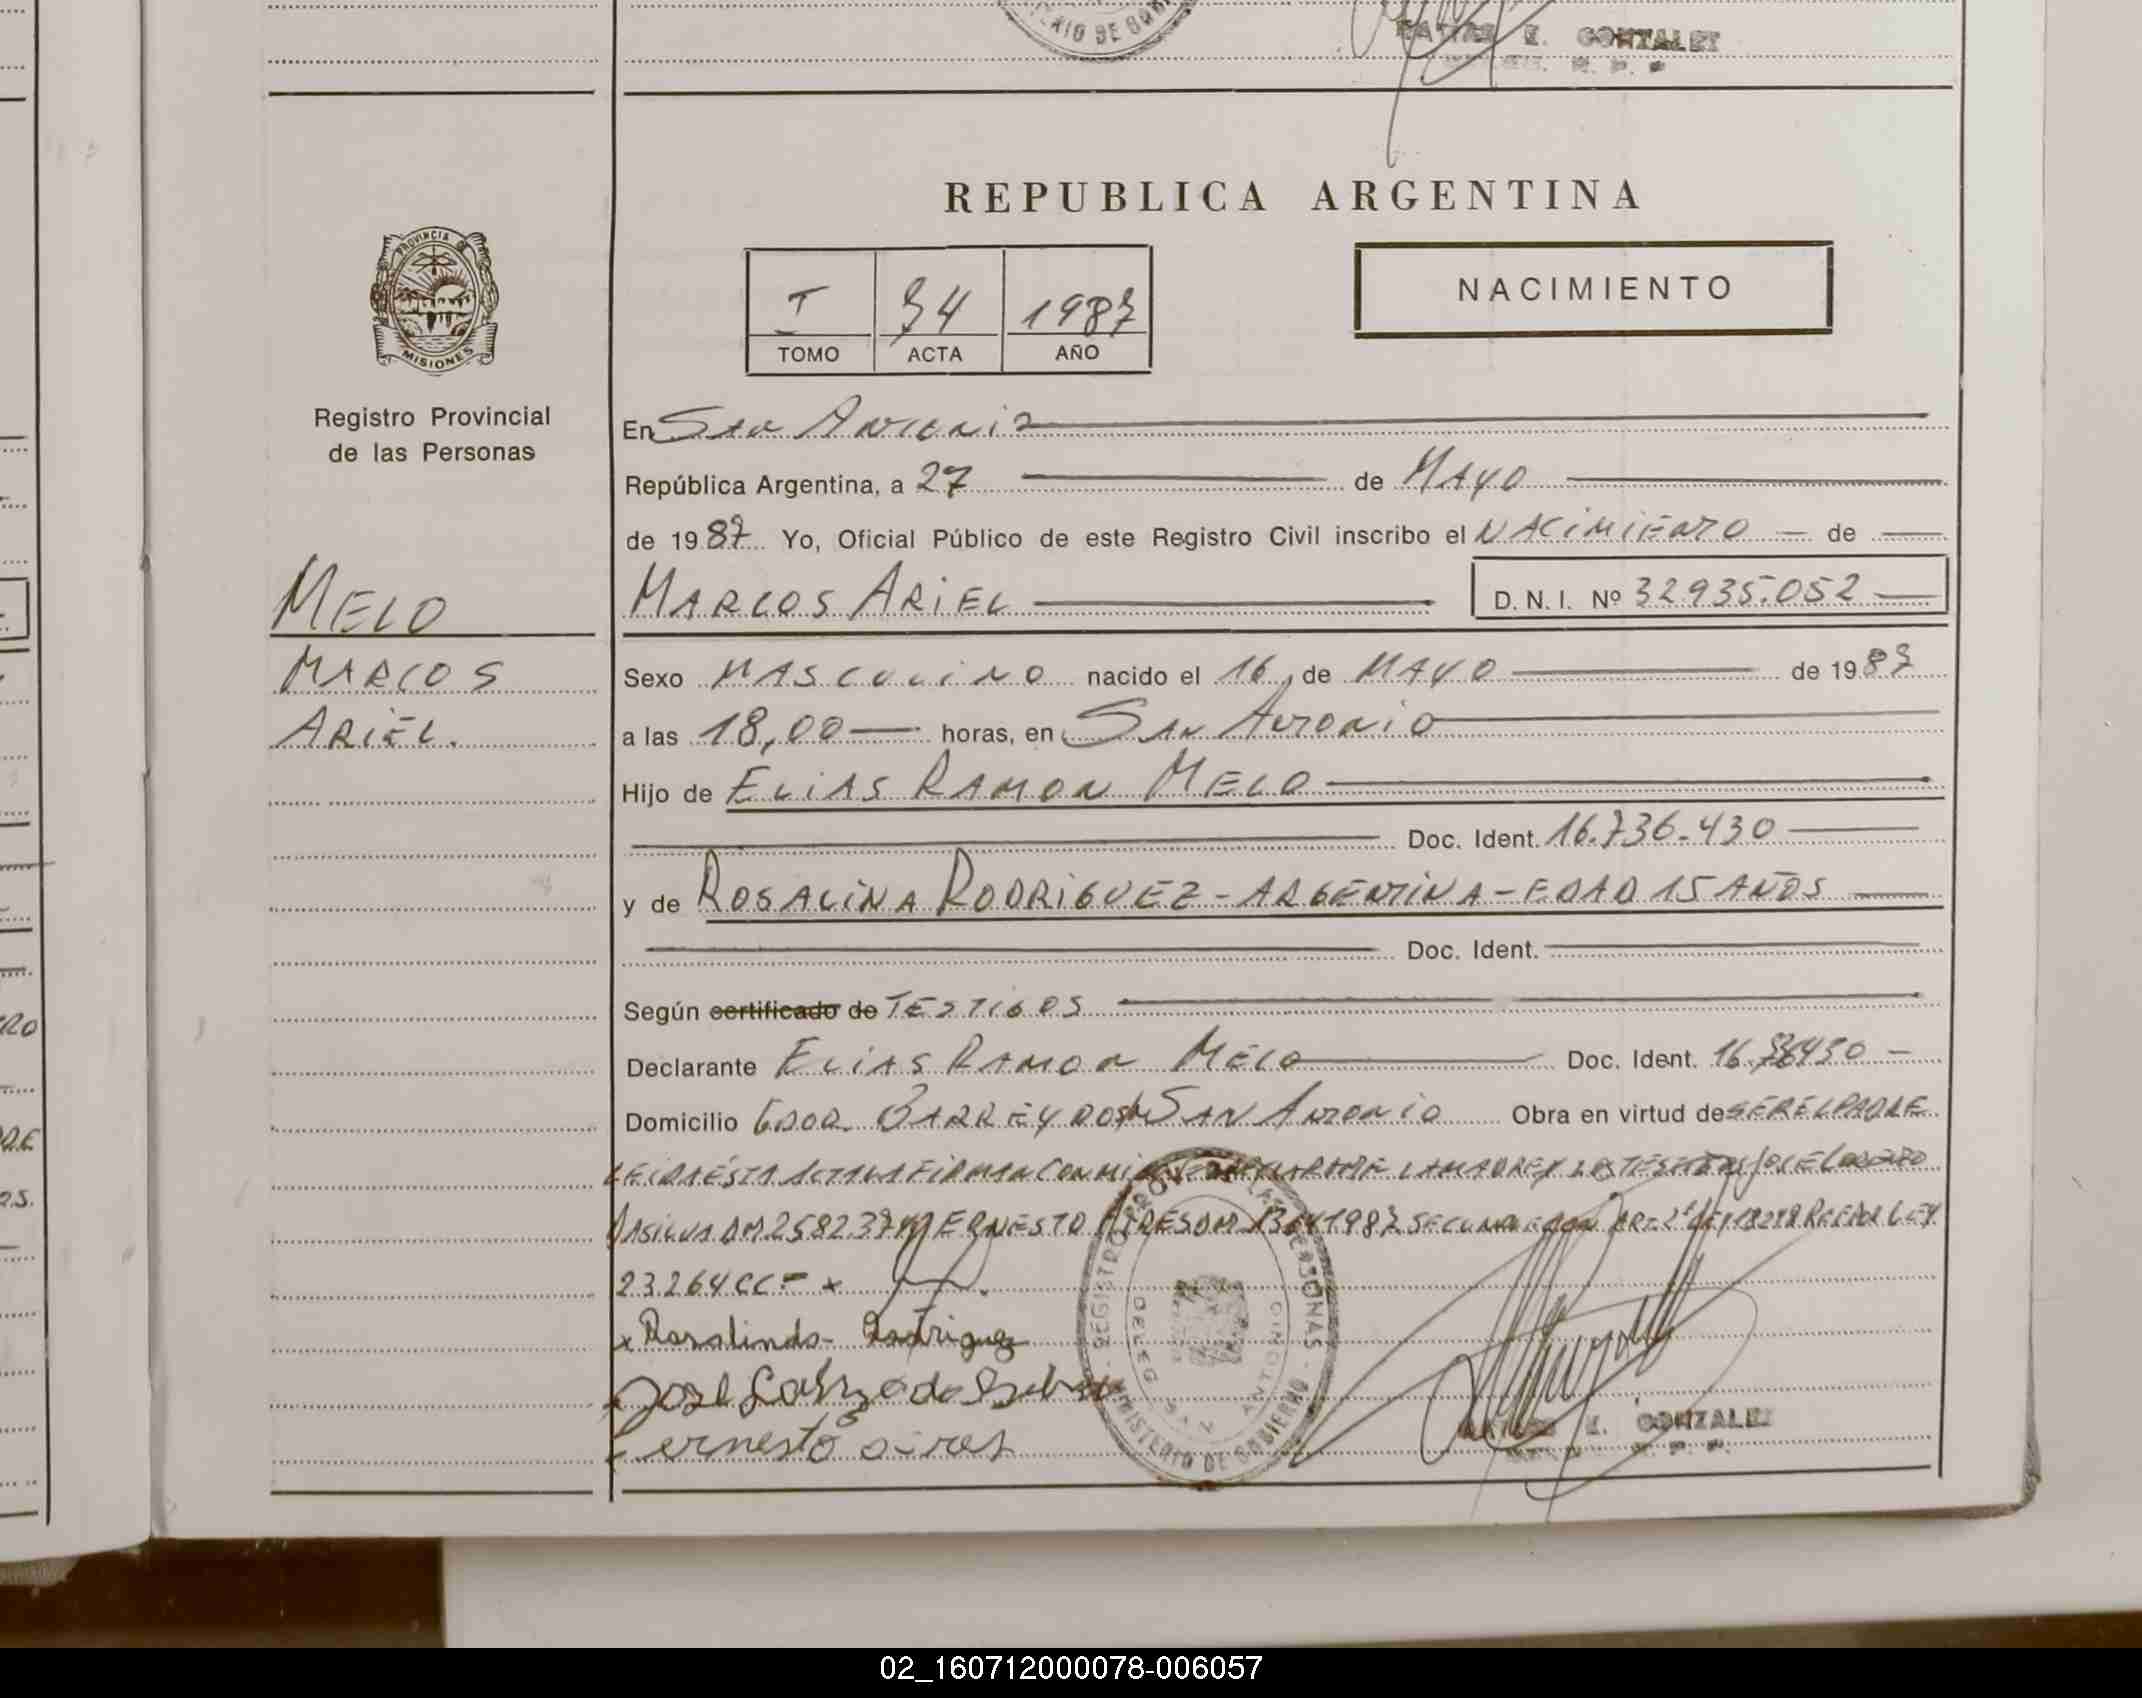 MATIAS E. GONZALEZ
REPUBLICA ARGENTINA
PROVINCIA DE
MISIONES
I 34 1987
TOMO ACTA AÑO
NACIMIENTO
Registro Provincial
de las Personas
En San Antonio
República Argentina, a 27 de MAYO
de 1987 Yo, Oficial Público de este Registro Civil inscribo el NACIMIENTO de
MELO
MARCOS ARIEL D. N. I. Nº 32935.052
MARCOS
ARIEL.
Sexo MASCULINO nacido el 16 de MAYO de 1987
a las 18,00 horas, en SAN ANTONIO
Hijo de ELIAS RAMON MELO
Doc. Ident. 16.736.430
y de ROSALINA RODRIGUEZ - ARGENTINA - EDAD 15 AÑOS
Doc. Ident.
Según certificado de TESTIGOS
Declarante ELIAS RAMON MELO Doc. Ident. 16.736430
Domicilio GDOR. BARREYRO SAN ANTONIO Obra en virtud de SER EL PADRE
LEIDA ESTA ACTA LA FIRMAN CONMIGO LA MADRE Y LOS TESTIGOS JOSE LORENZO
DASILVA ERNESTO AIRES LEY 18248 LEY
23264 CC - x
x Rosalinda Rodriguez
x José Lorenzo da Silva
x ernesto aires
REGISTRO PROV. DE LAS PERSONAS
DELEG. SAN ANTONIO
MINISTERIO DE GOBIERNO
MATIAS E. GONZALEZ
02_160712000078-006057